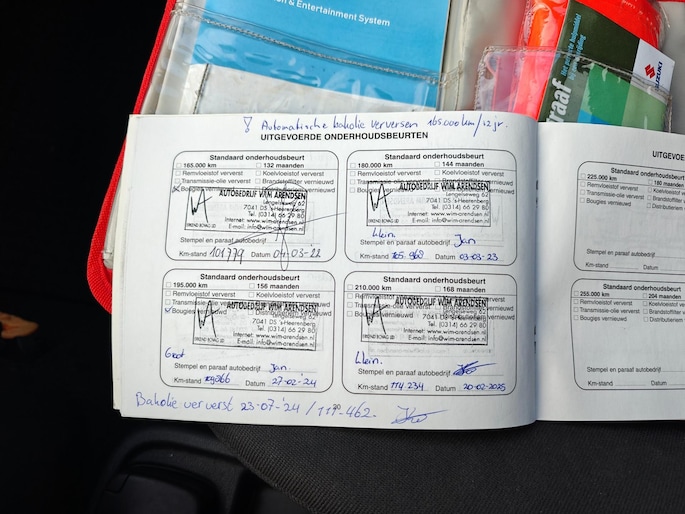 n & Entertainment System
SUZUKI
! Automatische bakolie verversen 165.000 km/12 jr.
UITGEVOERDE ONDERHOUDSBEURTEN
Standaard onderhoudsbeurt
165.000 km 132 maanden
Remvloeistof ververst Koelvloeistof ververst
Transmissie-olie ververst Brandstoffilter vernieuwd
Bougies vernieuwd
AUTOBEDRIJF WIM ARENDSEN
Lengelseweg 62
7041 DS 's-Heerenberg
Tel. (0314) 66 29 80
Internet: www.wim-arendsen.nl
E-mail: info@wim-arendsen.nl
ERKEND BOVAG LID
Stempel en paraaf autobedrijf
Km-stand 101779 Datum 01-03-'22
Standaard onderhoudsbeurt
180.000 km 144 maanden
Remvloeistof ververst Koelvloeistof ververst
Transmissie-olie ververst Brandstoffilter vernieuwd
AUTOBEDRIJF WIM ARENDSEN
Lengelseweg 62
7041 DS 's-Heerenberg
Tel. (0314) 66 29 80
Internet: www.wim-arendsen.nl
E-mail: info@wim-arendsen.nl
ERKEND BOVAG LID
Klein.
Stempel en paraaf autobedrijf Jan
Km-stand 105.968 Datum 03-03-23
Standaard onderhoudsbeurt
195.000 km 156 maanden
Remvloeistof ververst Koelvloeistof ververst
Bougies vernieuwd
AUTOBEDRIJF WIM ARENDSEN
Lengelseweg 62
7041 DS 's-Heerenberg
Tel. (0314) 66 29 80
Internet: www.wim-arendsen.nl
E-mail: info@wim-arendsen.nl
ERKEND BOVAG LID
Groot
Stempel en paraaf autobedrijf Jan.
Km-stand Datum 27-02-'24
Standaard onderhoudsbeurt
210.000 km 168 maanden
Remvloeistof ververst Koelvloeistof ververst
AUTOBEDRIJF WIM ARENDSEN
Lengelseweg 62
7041 DS 's-Heerenberg
Tel. (0314) 66 29 80
Internet: www.wim-arendsen.nl
E-mail: info@wim-arendsen.nl
ERKEND BOVAG LID
Klein.
Stempel en paraaf autobedrijf
Km-stand 114 234 Datum 20-02-2025
Bakolie ververst 23-07-'24 /
UITGEVOE
Standaard onderh
225.000 km 180 maanden
Remvloeistof ververst Koelvloeistof v
Transmissie-olie ververst Brandstoffilter
Bougies vernieuwd Distributieriem
Stempel en paraaf autobedrijf
Km-stand Dat
Standaard onderh
255.000 km 204 maanden
Remvloeistof ververst Koelvloeistof
Transmissie-olie ververst Brandstoffilter
Bougies vernieuwd Distributieriem
Stempel en paraaf autobedrijf
Km-stand Da